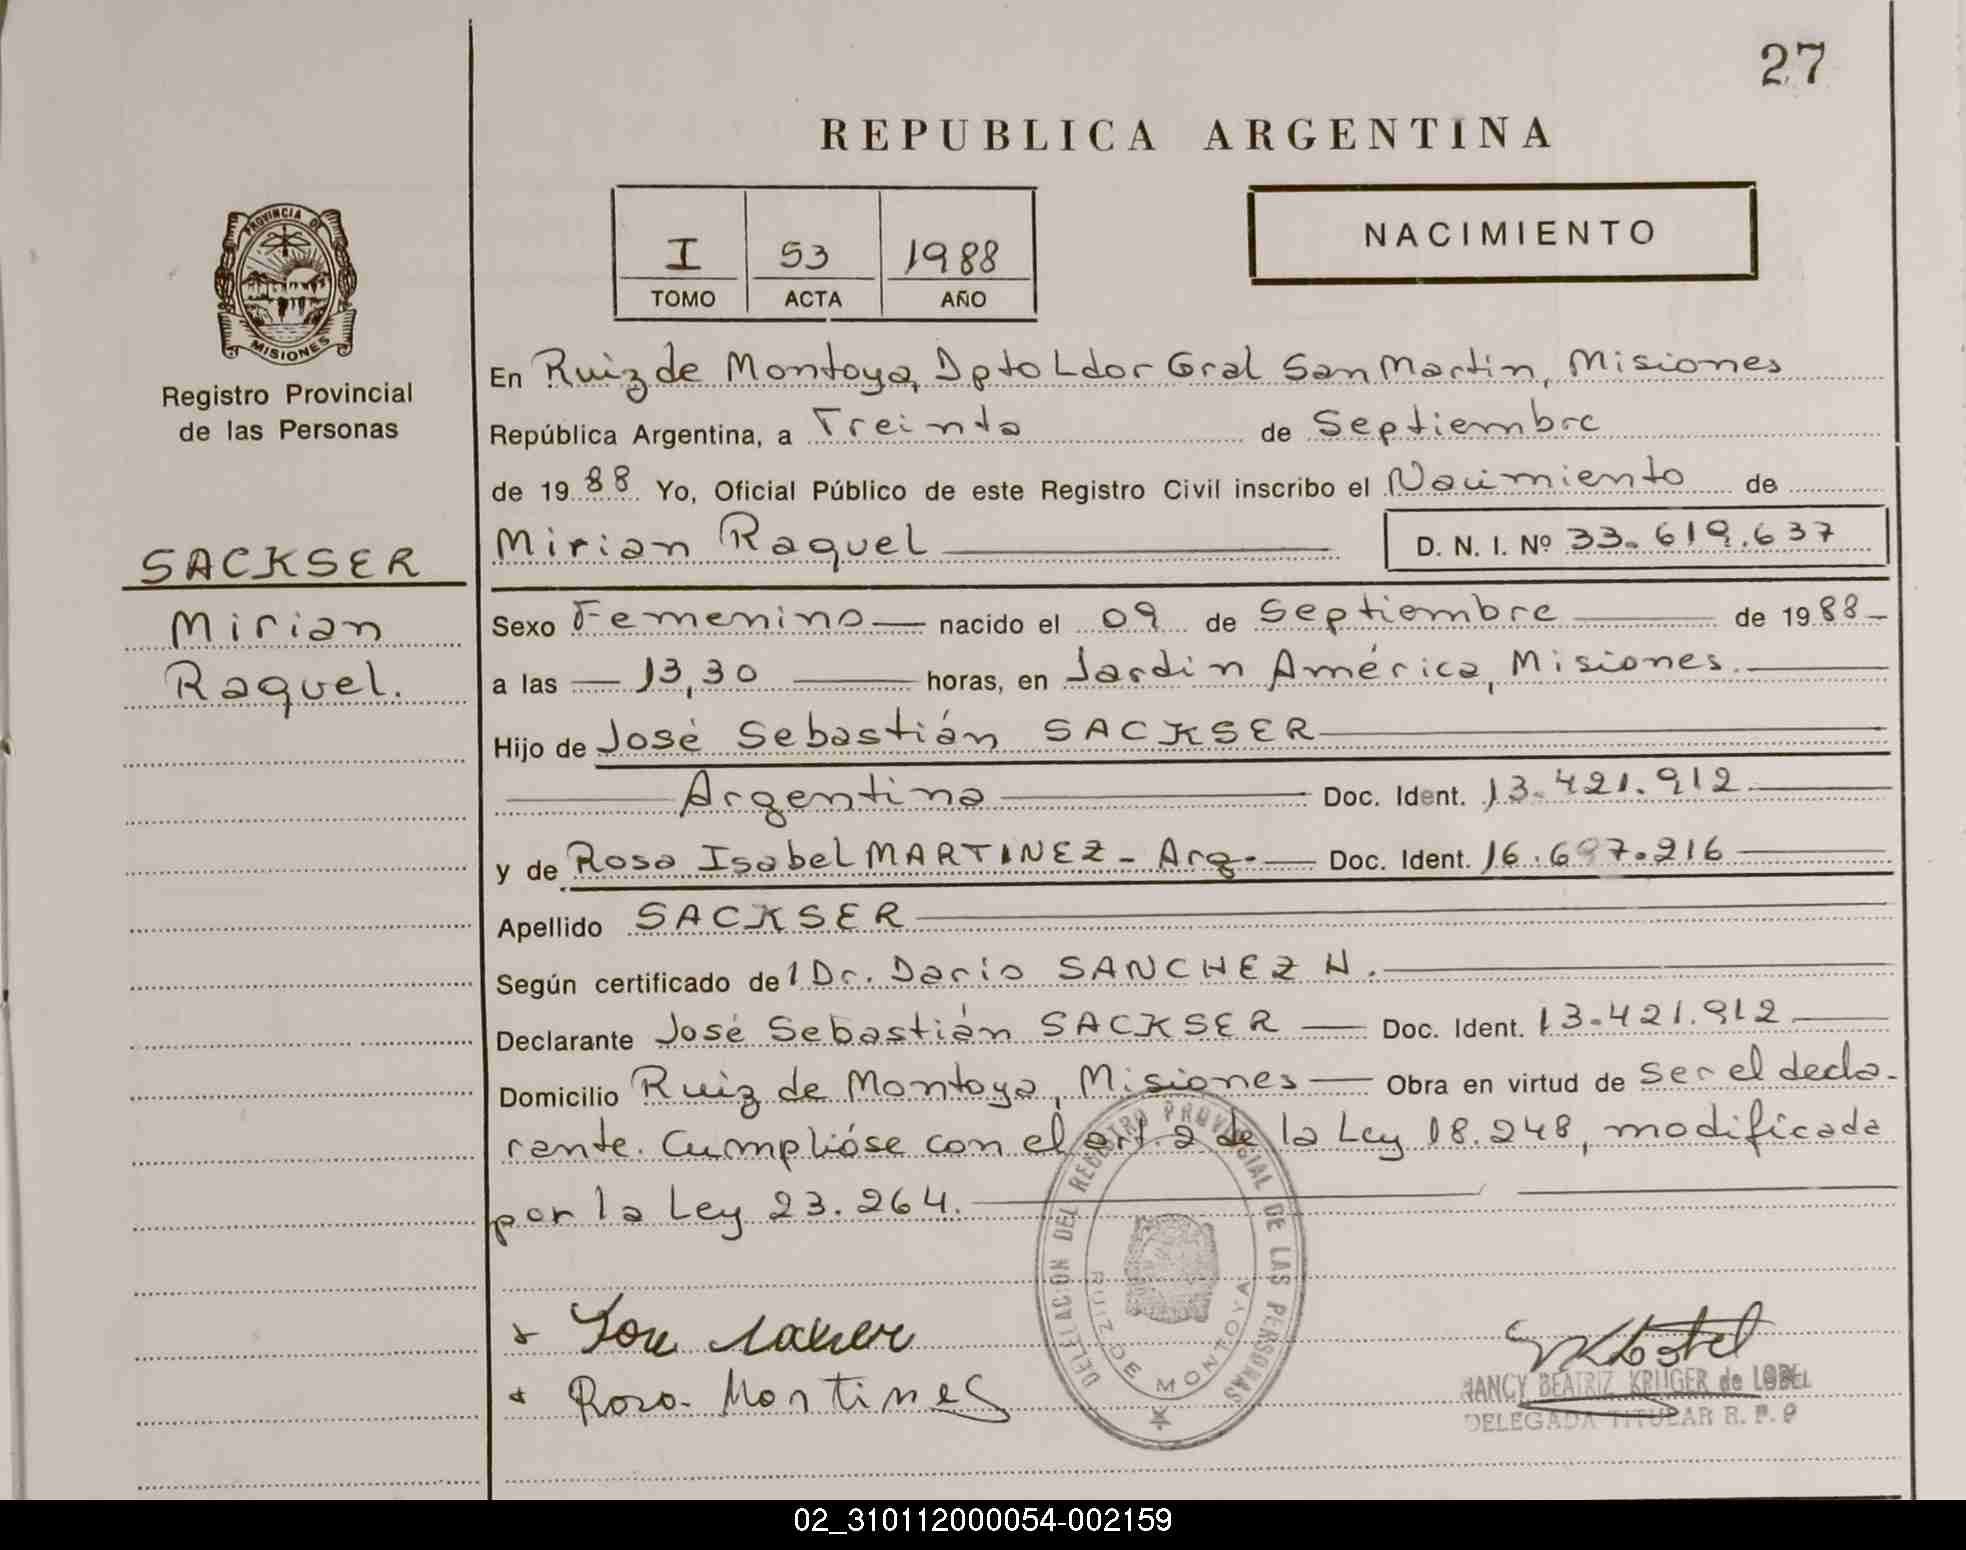 27
REPUBLICA ARGENTINA
I 53 1988
TOMO ACTA AÑO
NACIMIENTO
PROVINCIA DE
MISIONES
Registro Provincial
de las Personas
SACKSER
Mirian
Raquel.
En Ruiz de Montoya, Dpto Ldor Gral San Martin, Misiones
República Argentina, a Treinta de Septiembre
de 1988 Yo, Oficial Público de este Registro Civil inscribo el Nacimiento de
Mirian Raquel D. N. I. Nº 33.619.637
Sexo Femenino nacido el 09 de Septiembre de 1988
a las 13,30 horas, en Jardin América, Misiones.
Hijo de José Sebastián SACKSER
Argentina Doc. Ident. 13.421.912
y de Rosa Isabel MARTINEZ - Arg. Doc. Ident. 16.697.216
Apellido SACKSER
Según certificado de l Dr. Dario SANCHEZ H.
Declarante José Sebastián SACKSER Doc. Ident. 13.421.912
Domicilio Ruiz de Montoya, Misiones Obra en virtud de ser el decla-
rante. Cumplióse con el art. 2 de la Ley 18.248, modificada
por la Ley 23.264.
DELEGACION DEL REGISTRO PROVINCIAL DE LAS PERSONAS
RUIZ DE MONTOYA
Rosa Martines
NANCY BEATRIZ KRUGER de LOBEL
DELEGADA TITULAR R. P. P
02_310112000054-002159